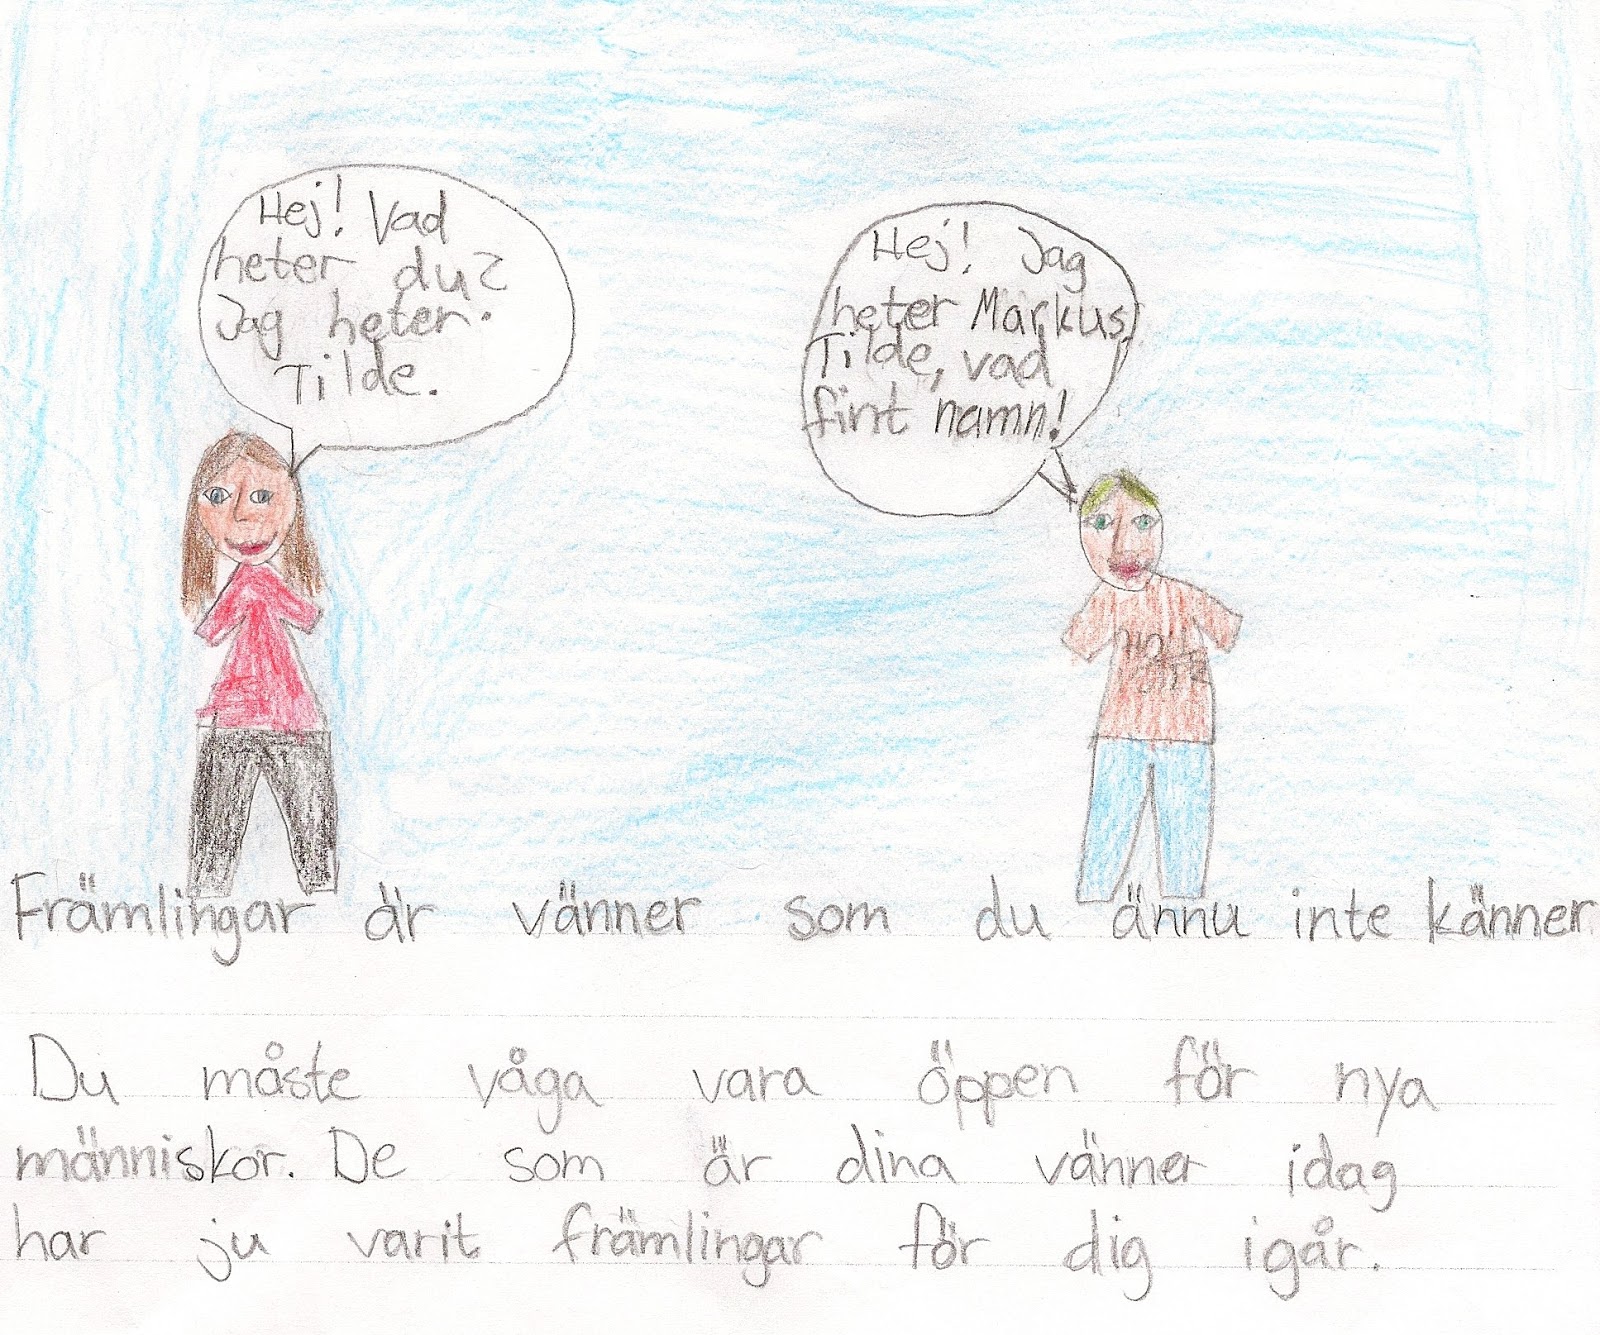 Hej! Vad
heter du?
Jag heter.
Tilde.
Hej! Jag
heter Markus.
Tilde, vad
fint namn!
Främlingar är vänner som du ännu inte känner.
Du måste våga vara öppen för nya
människor. De som är dina vänner idag
har ju varit främlingar för dig igår.